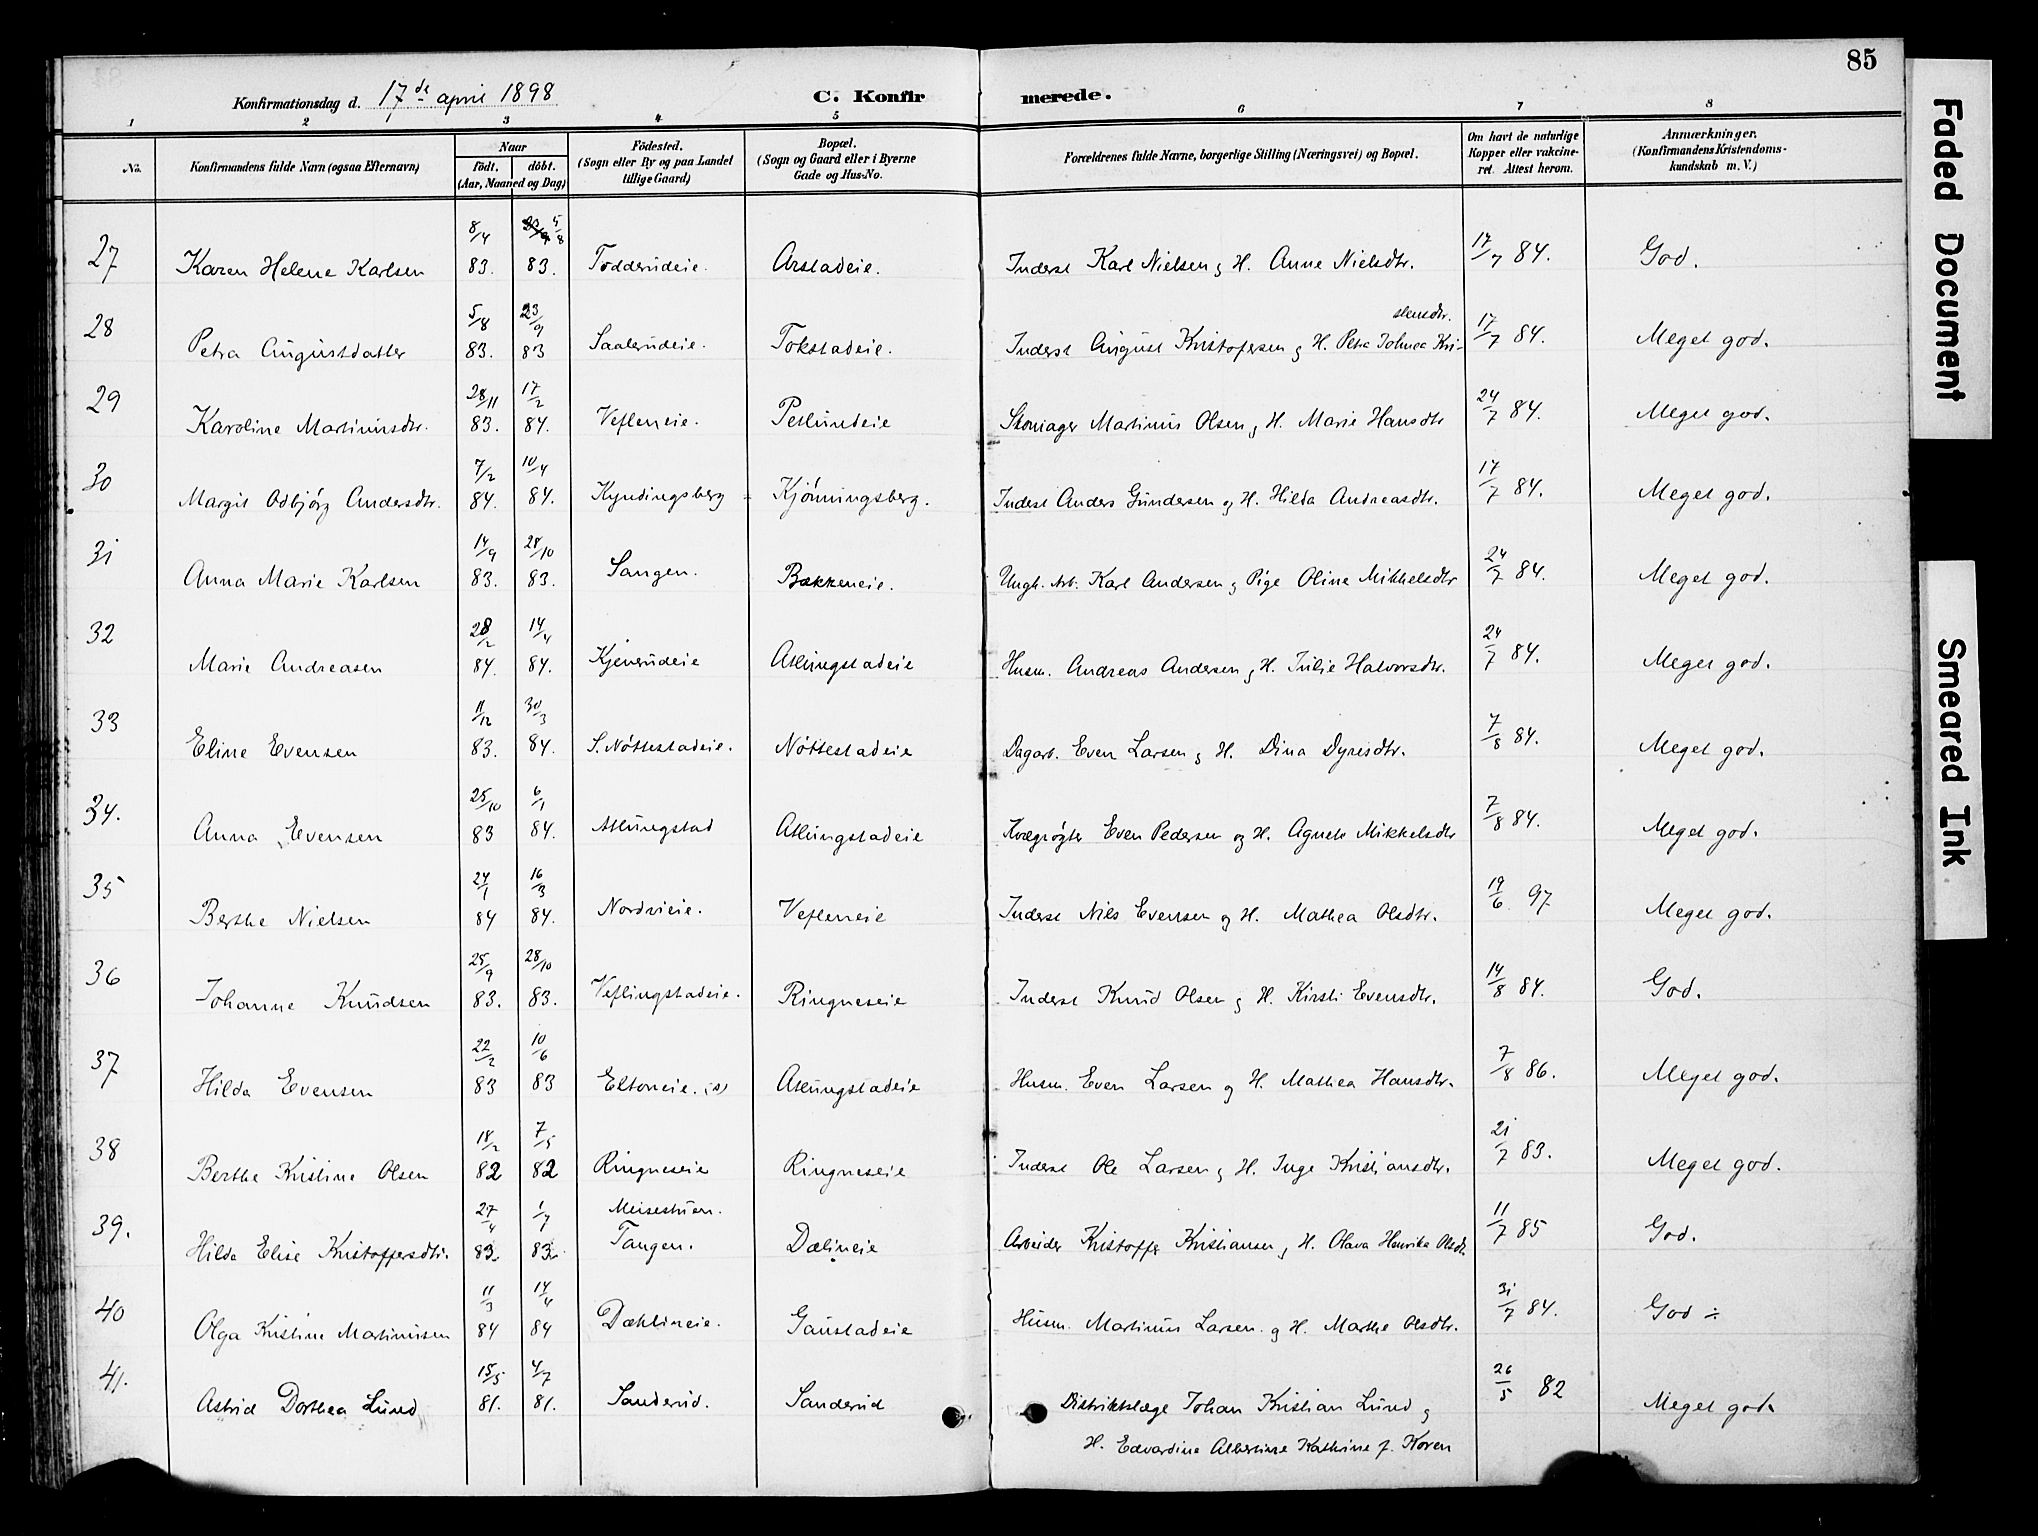 85
Konfirmationsdag d. 17de april 1898
C. Konfirmerede.
1 2 3 4 5 6 7 8
No. Konfirmandens fulde Navn (ogsaa Efternavn) Naar Födt. döbt. (Aar, Maaned og Dag) Födested. (Sogn eller By og paa Landet tillige Gaard) Bopæl. (Sogn og Gaard eller i Byerne Gade og Hus-No. Forældrenes fulde Navne, borgerlige Stilling (Næringsvei) og Bopæl. Om havt de naturlige Kopper eller vakcineret. Attest herom. Anmærkninger. (Konfirmandens Kristendomskundskab m. V.)
27 Karen Helene Karlsen 8/4 83. 5/8 83. Todderudeie. Arstadeie. Inderst Karl Nielsen g H. Anne Nielsdtr. 17/7 84. God.
28 Petra Augustdatter 5/8 83. 23/9 83 Saalerudeie. Tokstadeie. Inderst August Kristofersen g H. Petra Johnea Kristensdtr. 17/7 84. Meget god.
29 Karoline Martinusdtr. 28/11 83. 17/2 84. Vefleneie. Petlundeie Skomager Martinus Olsen g H. Marie Hansdtr 24/7 84. Meget god.
30 Margit Odbjörg Andersdtr. 7/2 84. 10/4 84. Kyndingsberg Kjönningsberg. Inderst Anders Gundersen og H. Hilda Andreasdtr. 17/7 84. Meget god.
31 Anna Marie Karlsen 14/9 83. 28/10 83. Sangen. Bakkeneie. Ungk. Arb. Karl Andersen g Pige Oline Mikkelsdtr 24/7 84. Meget god.
32 Marie Andreasen 28/2 84. 14/4 84. Kjenrudeie Atlungstadeie Husm. Andreas Andersen g H. Julie Halvorsdtr. 24/7 84. Meget god.
33 Eline Evensen 11/12 83. 30/3 84. S. Nöttestadeie. Nöttestadeie Dagarb. Even Larsen g H. Dina Dyresdtr. 7/8 84. Meget god.
34. Anna Evensen 25/10 83 6/1 84. Atlungstad Atlungstadeie Kvægrögter Even Pedersen og H. Agnete Mikkelsdtr 7/8 84. Meget god.
35 Berthe Nielsen 24/1 84 16/3 84. Nordvieie. Vefleneie Inderst Nils Evensen og H. Mathea Olsdtr. 19/6 97 Meget god.
36 Johanne Knudsen 25/9 83. 28/10 83. Veflingstadeie. Ringneseie Inderst Knud Olsen g H. Kirsti Evensdtr. 14/8 84. God.
37 Hilda Evensen 22/2 83 10/6 83 Eltoneie. (s) Atlungstadeie Husm. Even Larsen og H. Mathea Hansdtr. 7/8 86. Meget god.
38 Berthe Kristine Olsen 18/2 82 7/5 82 Ringneseie Ringneseie Inderst Ole Larsen g H. Inge Kristiansdtr. 21/7 83. Meget god.
39. Hilda Elise Kristoffersdtr. 27/4 83. 1/7 83. Meisestuen. Tangen. Dælineie Arbeider Kristoffer Kristiansen g H. Olava Henrika Olsdtr. 11/7 85 God.
40 Olga Kristine Martinusen 11/3 84 14/4 84 Dæhlineie. Gaustadeie Husm. Martinus Larsen og H. Marthe Olsdtr. 31/7 84. God ÷
41. Astrid Dorthea Lund 15/5 81. 4/7 81. Sanderud. Sanderud Distriktslæge Johan Kristian Lund g
H. Edvardine Albertine Kathrine f. Koren 26/5 82 Meget god.
Faded Document
Smeared Ink